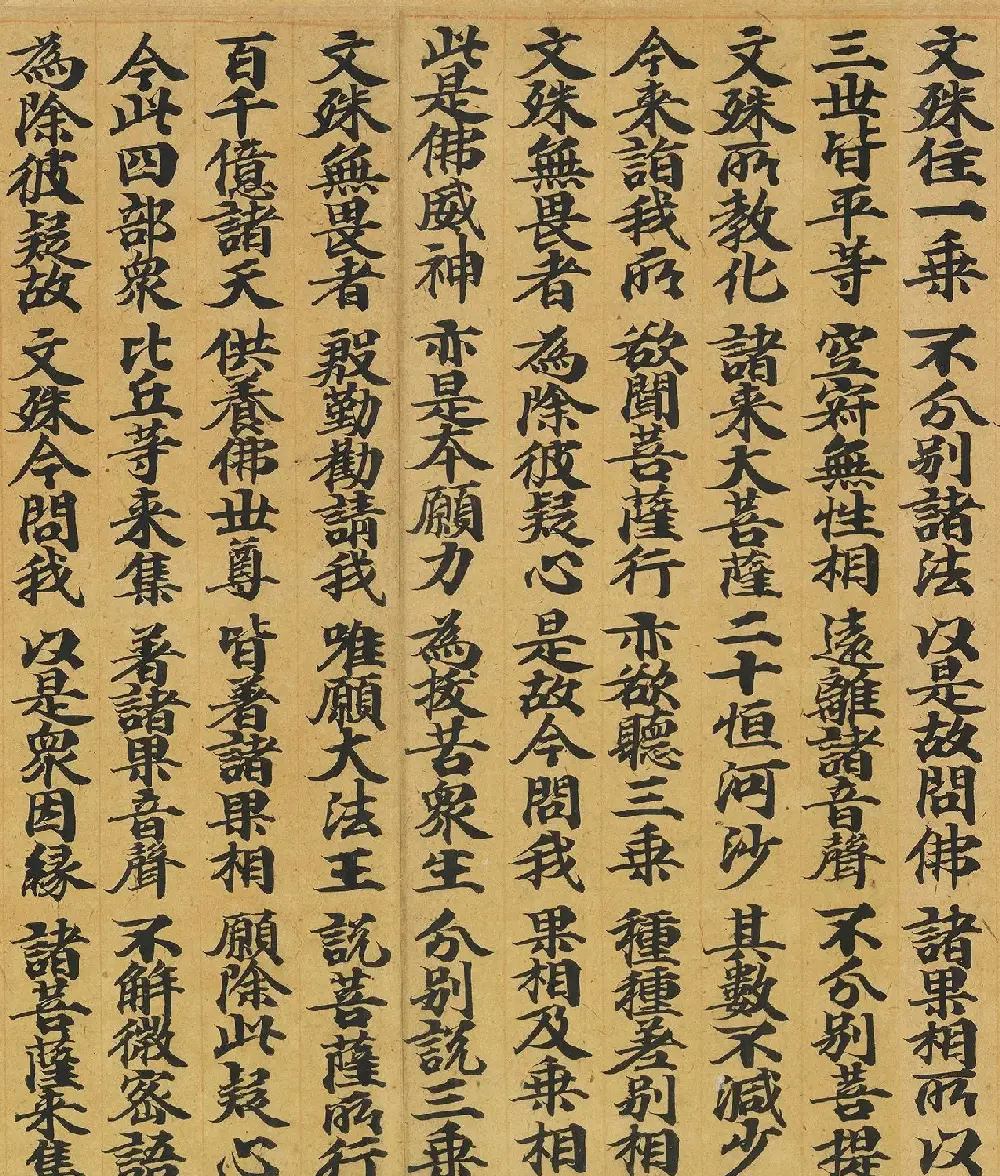 文殊住一乘 不分别諸法 以是故問佛 諸果相所以
三世皆平等 空寂無性相 遠離諸音聲 不分别菩提
文殊所教化 諸来大菩薩 二十恒河沙 其數不減少
今来詣我所 欲聞菩薩行 亦欲聽三乘 種種差别相
文殊無畏者 為除彼疑心 是故今問我 果相及乘相
此是佛威神 亦是本願力 為拔苦衆生 分别説三乘
文殊無畏者 殷勤勸請我 唯願大法王 説菩薩所行
百千億諸天 供養佛世尊 皆著諸果相 願除此疑心
今此四部衆 比丘等来集 著諸果音聲 不解微密語
為除彼疑故 文殊今問我 以是衆因縁 諸菩薩来集